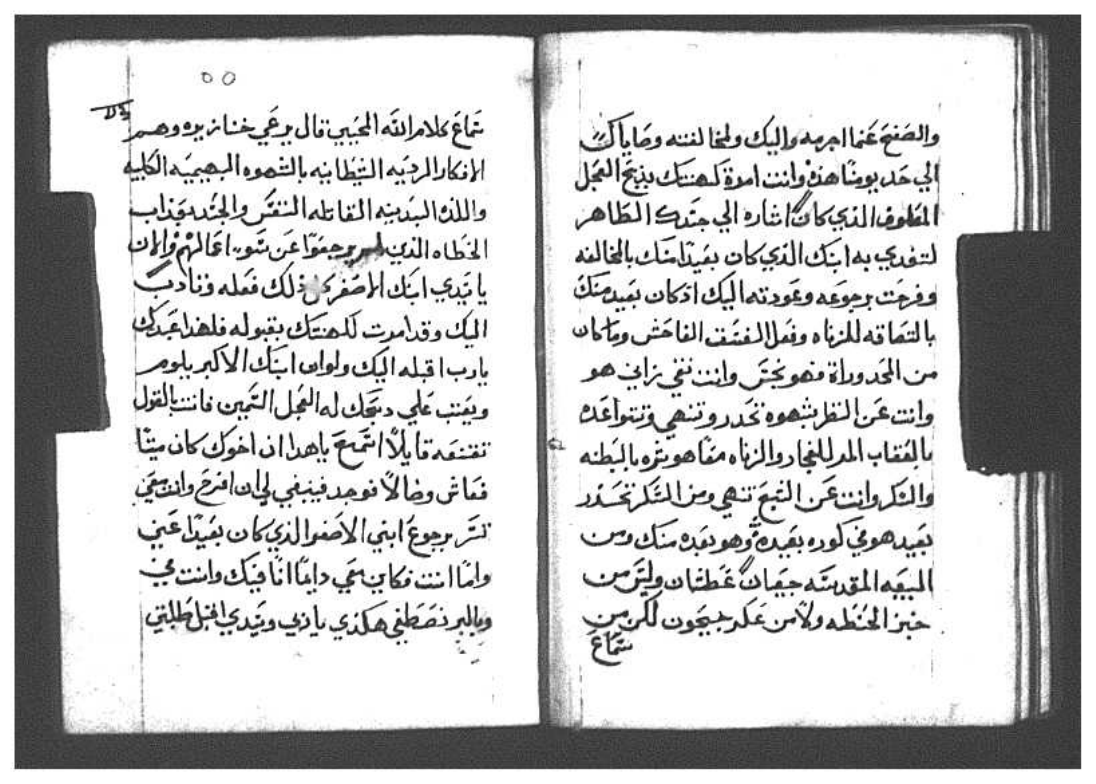 والصفح عنما اجرمه واليك ولمخالفته وصاياك
الي حد يومنا هذا وانت امرة لكهنتك بذبح العجل
المعلوف الذي كان اشاره الي جسدك الطاهر
لتفدي به ابنك الذي كان بعيدا منك بالمخالفه
وفرحت برجوعه وعودته اليك اذ كان بعيد منك
بالتصاقه للزناه وفعل الفسق الفاحش وما كان
من المحدوراة فهو نجس وانت نقي زاني هو
وانت عن النظر بشهوة تحدر وتنهي وتتواعده
بالعقاب المر للفجار والزناه معًا هو شره بالبطنه
والسكر وانت عن الشبع تنهي ومن السكر تحدر
بعيد هو في كوره بعيدة وهو بعده منك ومن
البيعه المقدسه جيعان عطشان وليس من
خبز الحنطه ولا من عكر جيحون لكن من
سماع
٥٥
سماع كلام الله المحيي قال يرعي خنازيره وهم
الافكار الرديه الشيطانيه بالشهوه البهيميه الكلبيه
واللذه البدينه القاتله النفس والجسد وعذاب
الخطاه الذين لم يرجعوا عن سو اعمالهم والان
يا سيدي ابنك الاصغر كل ذلك فعله وتادب
اليك وقد امرت لكهنتك بقبوله فلهذا عبدك
يارب اقبله اليك ولو ان ابنك الاكبر يلوم
ويعتب علي دبحك له العجل السمين فانت بالقول
تقنعه قايلاً اسمع ياهدا ان اخوك كان ميتًا
فعاش وضالاً فوجد فينبغي لي ان افرح وانت معي
تسر برجوع ابني الاصغر الذي كان بعيدًا عني
واما انت فكاين معي دايمًا انا فيك وانت في
وبالبر تصطفي هكذي ياربي وسيدي اقبل طلبتي